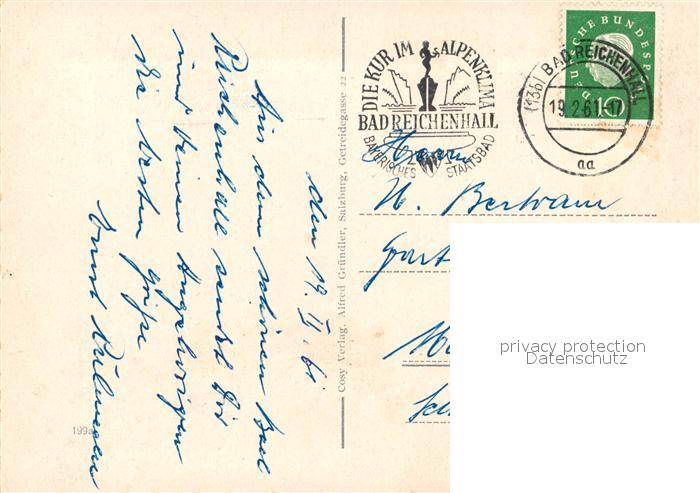 den 19. II. 61
Aus dem schönen Bad
Reichenhall sendet Dir
und Deinen Angehörigen
die besten Grüße
Ernst
199
Cosy Verlag, Alfred Gründler, Salzburg, Getreidegasse 22
DIE KUR IM ALPENKLIMA
BAD REICHENHALL
BAYERISCHES STAATSBAD
DEUTSCHE BUNDESPOST
10
(13b) BAD REICHENHALL
19.2.61-17
aa
Herrn
H. Bertram
privacy protection
Datenschutz